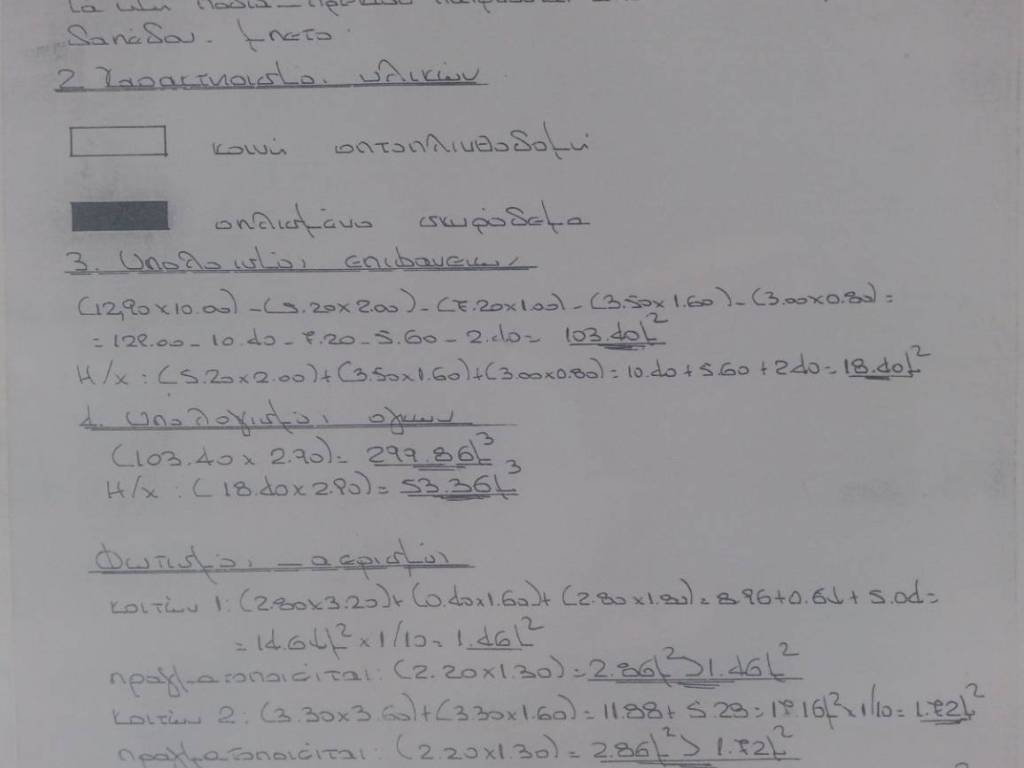 δαπέδου. μπετο.
2. Χαρακτηρισμο, υλικών
κοινή οπτοπλινθοδομή
οπλισμένο σκυρόδεμα
3. Υπολογισμό, επιφανειων
(12,90x10.00) - (5.20x2.00) - (7.20x1.00) - (3.50x1.60) - (3.00x0.80) =
= 129.00 - 10.40 - 7.20 - 5.60 - 2.40 = 103.40μ²
Η/χ : (5.20x2.00) + (3.50x1.60) + (3.00x0.80) = 10.40 + 5.60 + 2.40 = 18.40μ²
4. Υπολογισμό, ογκων
(103.40 x 2.90) = 299.86μ³
Η/χ : (18.40x2.90) = 53.36μ³
Φωτισμό, - αερισμό,
κοιτών 1: (2.80x3.20) + (0.40x1.60) + (2.80x1.80) = 8.96 + 0.64 + 5.04 =
= 14.64μ² x 1/10 = 1.46μ²
πραγματοποιείται: (2.20x1.30) = 2.86μ² > 1.46μ²
κοιτών 2: (3.30x3.60) + (3.30x1.60) = 11.88 + 5.28 = 17.16μ² x 1/10 = 1.72μ²
πραγματοποιείται: (2.20x1.30) = 2.86μ² > 1.72μ²